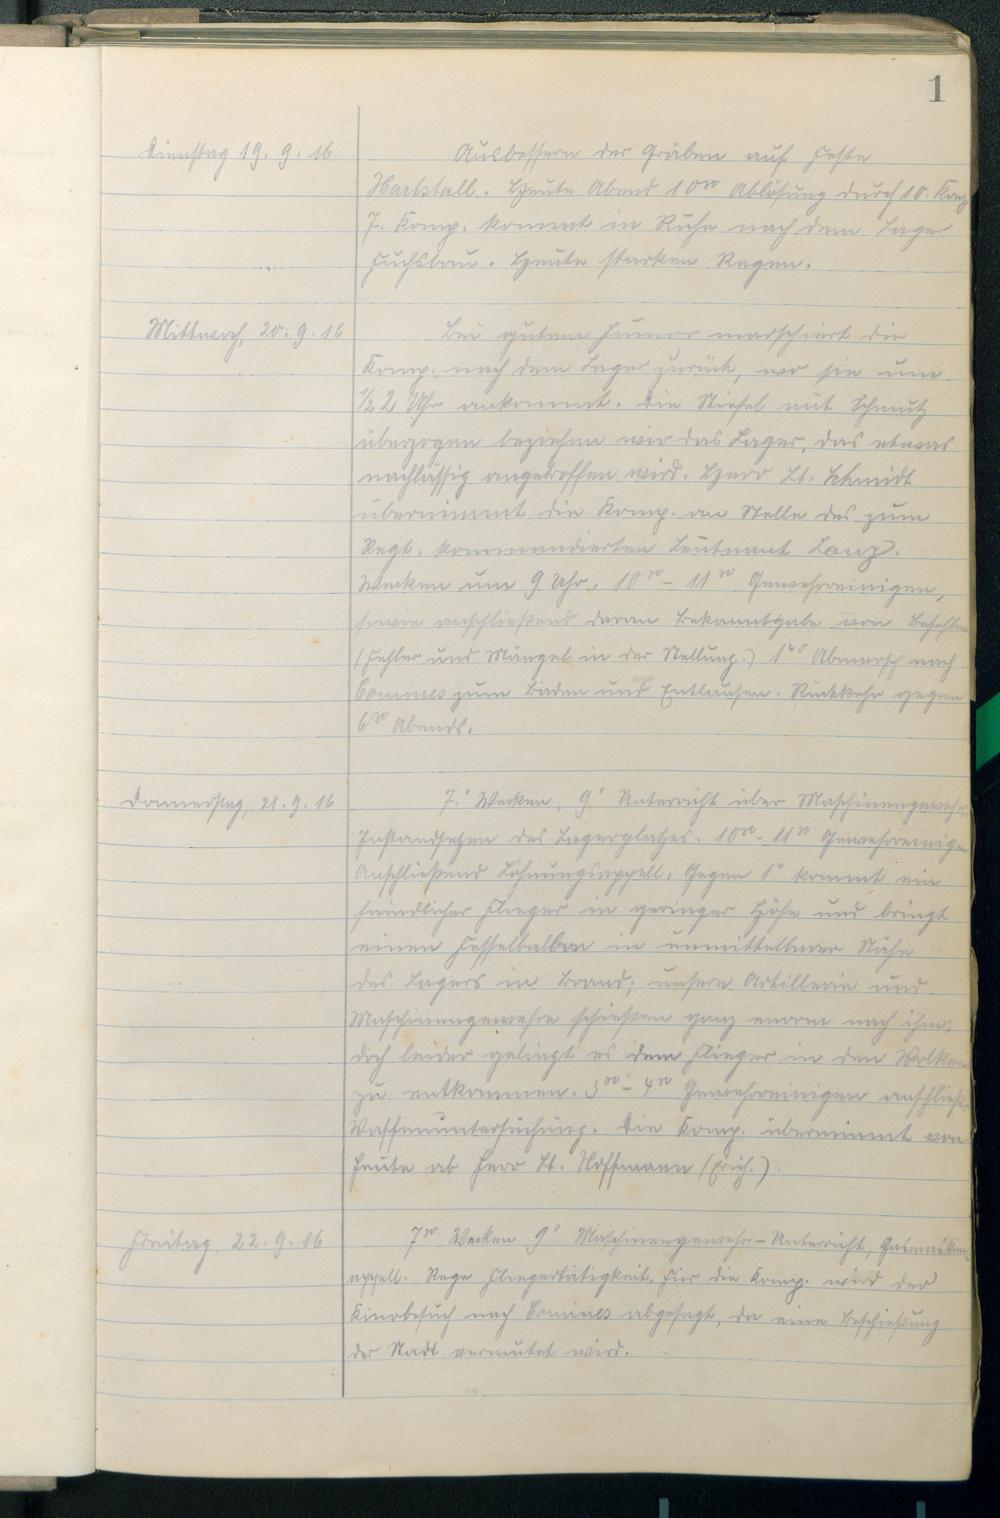 1
Dienstag 19. 9. 16
Ausbessern der Gräben auf Feste
Hartstall. Heute Abend 10³⁰ Ablösung durch 10. Komp
7. Komp. kommt in Ruhe nach dem Lager
Fuchsbau. Heute starken Regen.
Mittwoch, 20. 9. 16
Bei gutem Humor marschiert die
Komp. nach dem Lager zurück, wo sie um
½ 2 Uhr ankommt. Die Stiefel mit Schmutz
überzogen beziehen wir das Lager, das etwas
nachlässig angetroffen wird. Herr Lt. Schmidt
übernimmt die Komp. an Stelle des zum
Regt. kommandierten Leutnant Lanz.
Wecken um 9 Uhr. 10³⁰ – 11³⁰ Gewehrreinigen,
sowie anschließend daran Bekanntgabe von Befehlen
(Fehler und Mängel in der Stellung.) 1⁴⁵ Abmarsch nach
Comines zum Baden und Entlausen. Rückkehr gegen
6³⁰ Abends.
Donnerstag, 21. 9. 16
7.° Wecken, 9° Unterricht über Maschinengewehr
Instandsetzen des Lagerplatzes. 10³⁰ – 11³⁰ Gewehrreinigen
Anschließend Löhnungsappell. Gegen 1° kommt ein
feindlicher Flieger in geringer Höhe und bringt
einen Fesselballon in unmittelbarer Nähe
des Lagers in Brand; unsere Artillerie und
Maschinengewehre schießen ganz enorm nach ihm,
doch leider gelingt es dem Flieger in den Wolken
zu entkommen. 3³⁰ – 4³⁰ Gewehrreinigen anschließ.
Waffenuntersuchung. Die Komp. übernimmt von
heute ab Herr Lt. Hoffmann (Erich.)
Freitag, 22. 9. 16
7³⁰ Wecken 9° Maschinengewehr – Unterricht, Gasmasken-
appell. Rege Fliegertätigkeit. Für die Komp. wird der
Kinobesuch nach Comines abgesagt, da eine Beschießung
der Stadt vermutet wird.